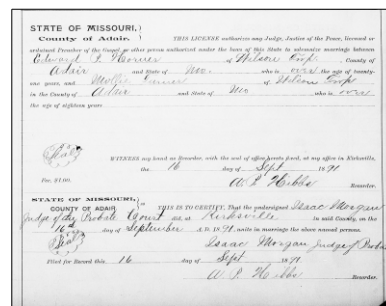 STATE OF MISSOURI,
County of Adair.
THIS LICENSE authorizes any Judge, Justice of the Peace, licensed or
ordained Preacher of the Gospel, or other person authorized under the laws of this State to solemnize marriage between
Edward P. of Wilson Twp., County of
Adair and State of Mo. who is over the age of twenty-
one years, and Mollie of Wilson Twp
in the County of Adair and State of Mo who is over
the age of eighteen years
WITNESS my hand as Recorder, with the seal of office hereto fixed, at my office in Kirksville,
Seal
the 16 day of Sept 1891
Fee, $1.00.
A. P. Hibbs Recorder.
STATE OF MISSOURI,
COUNTY OF ADAIR.
THIS IS TO CERTIFY, That the undersigned Isaac Morgan
Judge of the Probate Court at Kirksville in said County, on the
16th day of September A.D. 1891, unite in marriage the above named persons.
Seal
Isaac Morgan Judge of Probate
Filed for Record this 16 day of Sept 1891.
A. P. Hibbs Recorder.